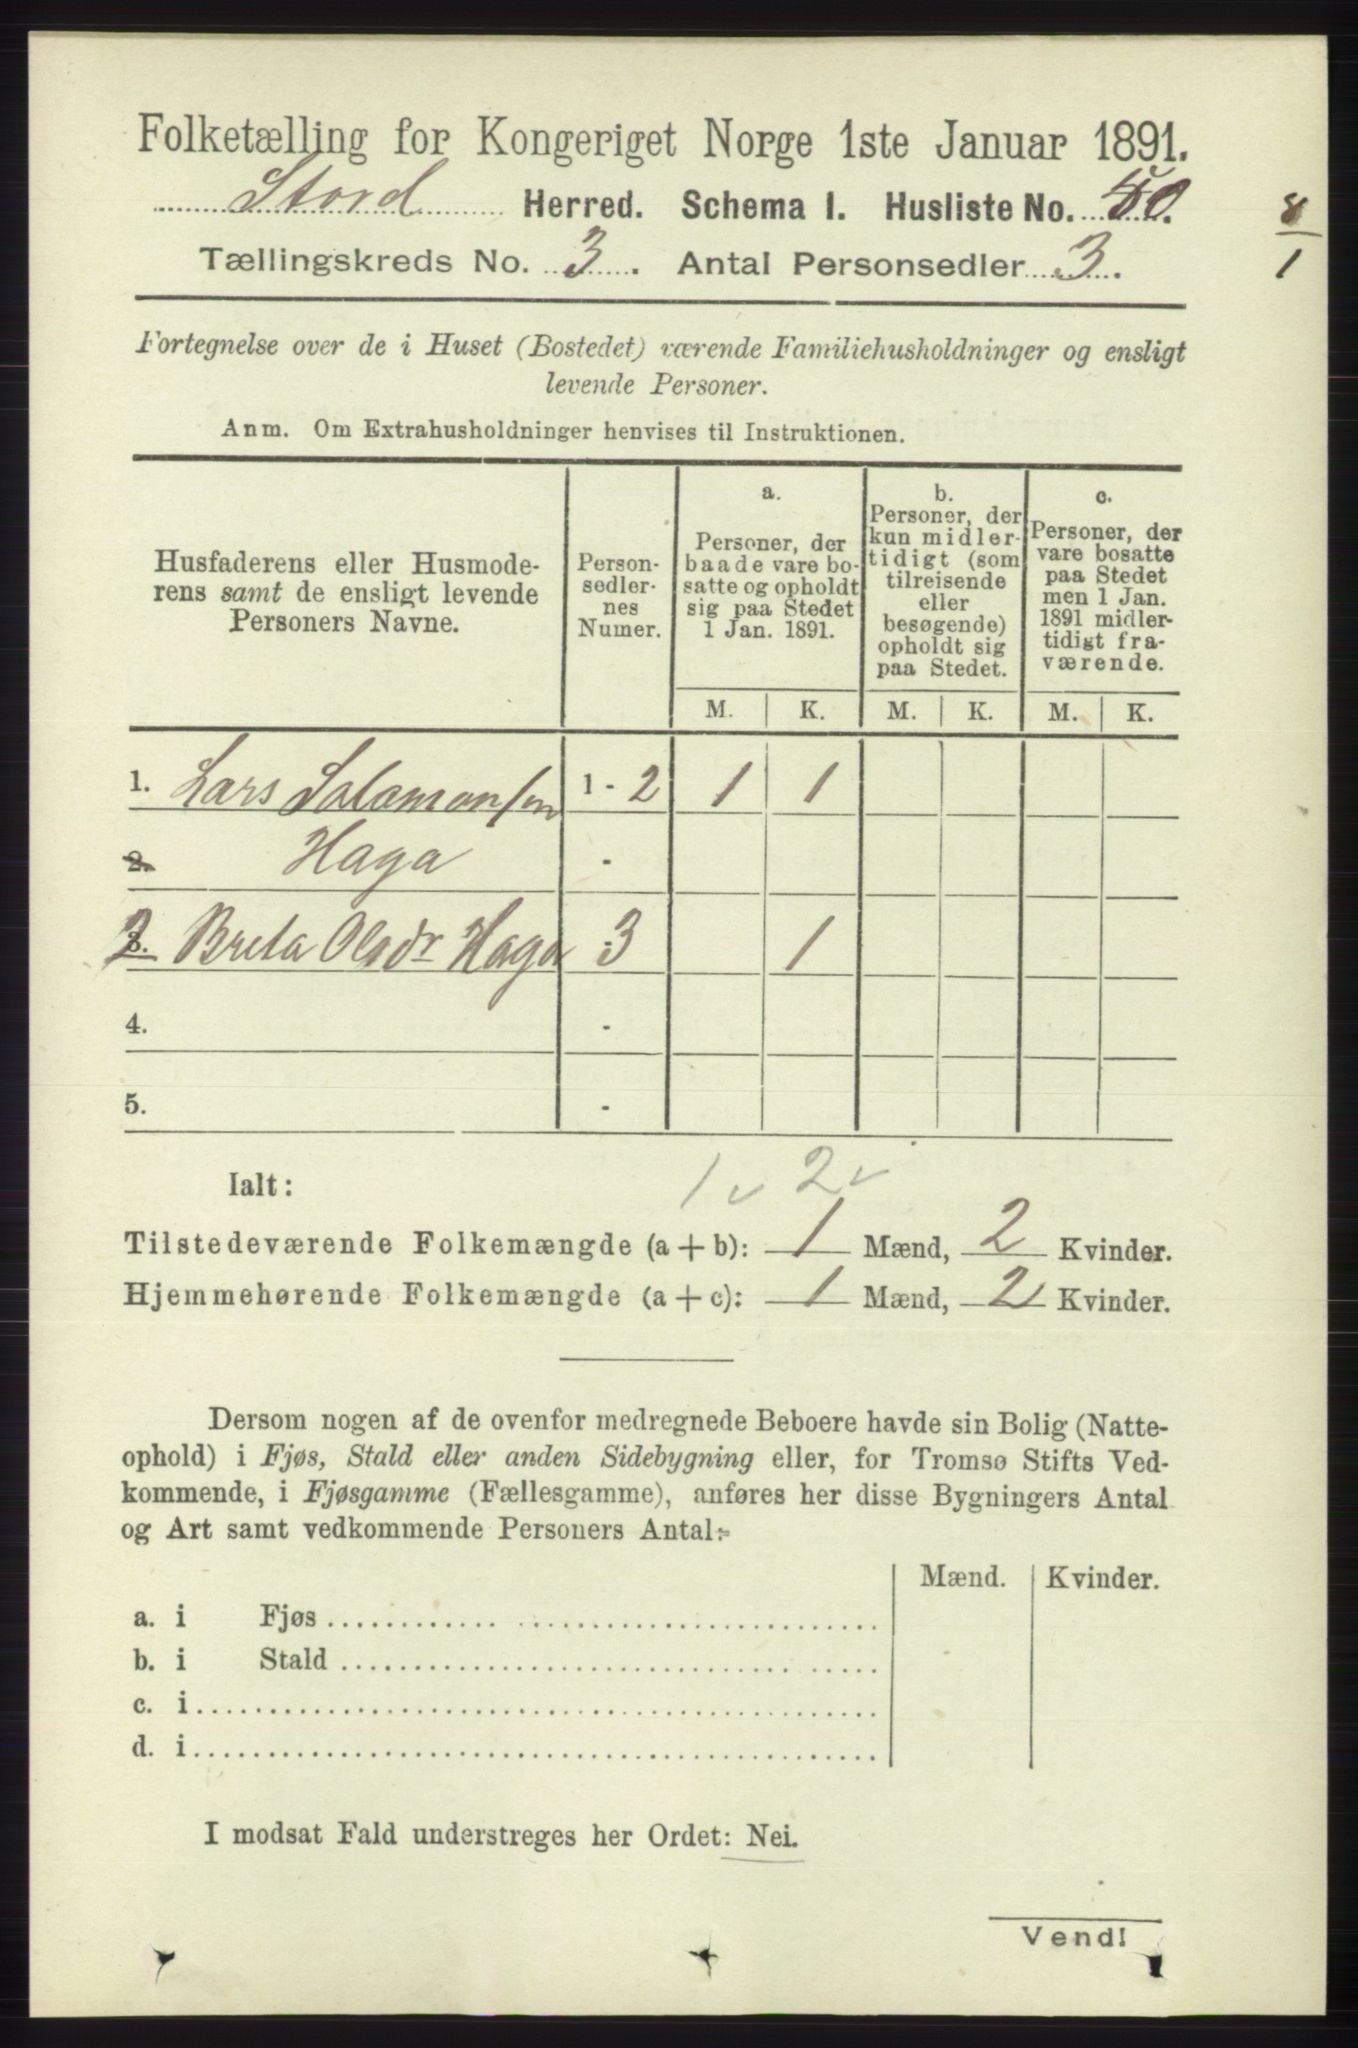 Folketælling for Kongeriget Norge 1ste Januar 1891.
Stord Herred. Schema I. Husliste No. 50.
8
1
Tællingskreds No. 3. Antal Personsedler 3.
Fortegnelse over de i Huset (Bostedet) værende Familiehusholdninger og ensligt
levende Personer.
Anm. Om Extrahusholdninger henvises til Instruktionen.
Husfaderens eller Husmode-
rens samt de ensligt levende
Personers Navne.
Person-
sedler-
nes
Numer.
a.
Personer, der
baade vare bo-
satte og opholdt
sig paa Stedet
1 Jan. 1891.
b.
Personer, der
kun midler-
tidigt (som
tilreisende
eller
besøgende)
opholdt sig
paa Stedet.
c.
Personer, der
vare bosatte
paa Stedet
men 1 Jan.
1891 midler-
tidigt fra-
værende.
M. K. M. K. M. K.
1. Lars Salamonsen 1 - 2 1 1
2. Haga -
2 3. Breta Olsdr Haga 3 1
4. -
5. -
1 2
Ialt:
Tilstedeværende Folkemængde (a + b): 1 Mænd, 2 Kvinder.
Hjemmehørende Folkemængde (a + c): 1 Mænd, 2 Kvinder.
Dersom nogen af de ovenfor medregnede Beboere havde sin Bolig (Natte-
ophold) i Fjøs, Stald eller anden Sidebygning eller, for Tromsø Stifts Ved-
kommende, i Fjøsgamme (Fællesgamme), anføres her disse Bygningers Antal
og Art samt vedkommende Personers Antal:
Mænd. Kvinder.
a. i Fjøs
b. i Stald
c. i
d. i
I modsat Fald understreges her Ordet: Nei.
Vend!